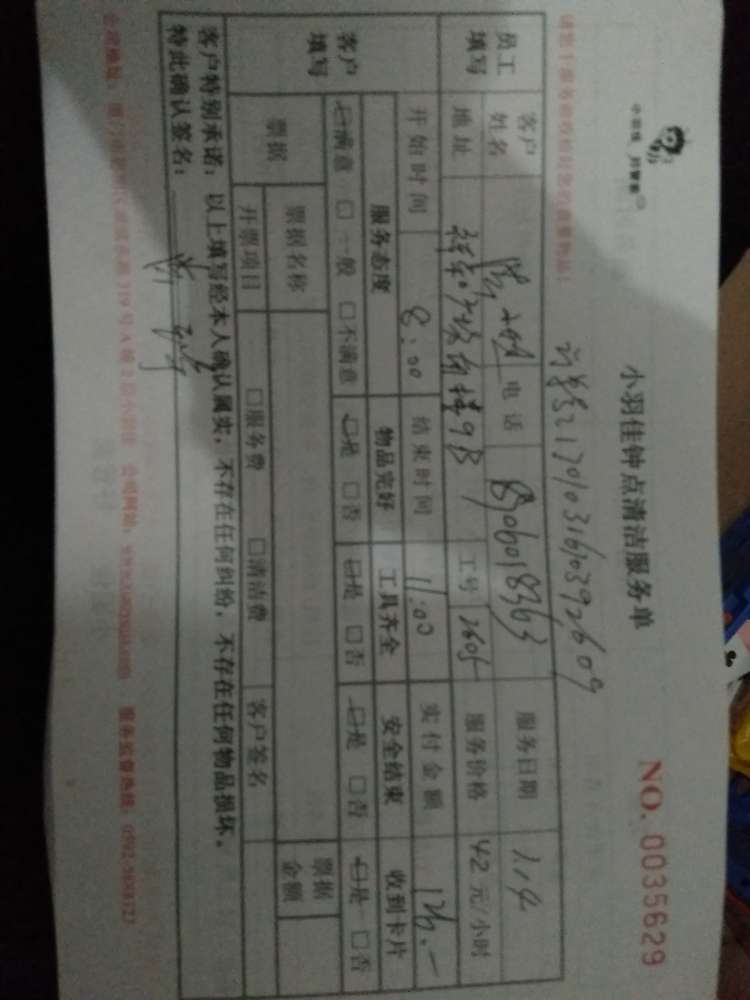 小羽佳 好管家
小羽佳钟点清洁服务单
NO. 0035629
请您于服务前收检好您的贵重物品!
订单号21701031610392609
员工填写
客户姓名
电话
服务日期 1.14
地址
工号 2605
服务价格 42元/小时
客户填写
开始时间 8:00
结束时间 11:00
实付金额 126.-
服务态度 物品完好 工具齐全 安全结束 收到卡片
☑满意 □一般 □不满意 ☑是 □否 ☑是 □否 ☑是 □否 ☑是 □否
票据
票据名称
票据金额
开票项目 □服务费 □清洁费 客户签名
客户特别承诺:以上填写经本人确认属实,不存在任何纠纷,不存在任何物品损坏。
特此确认签名: